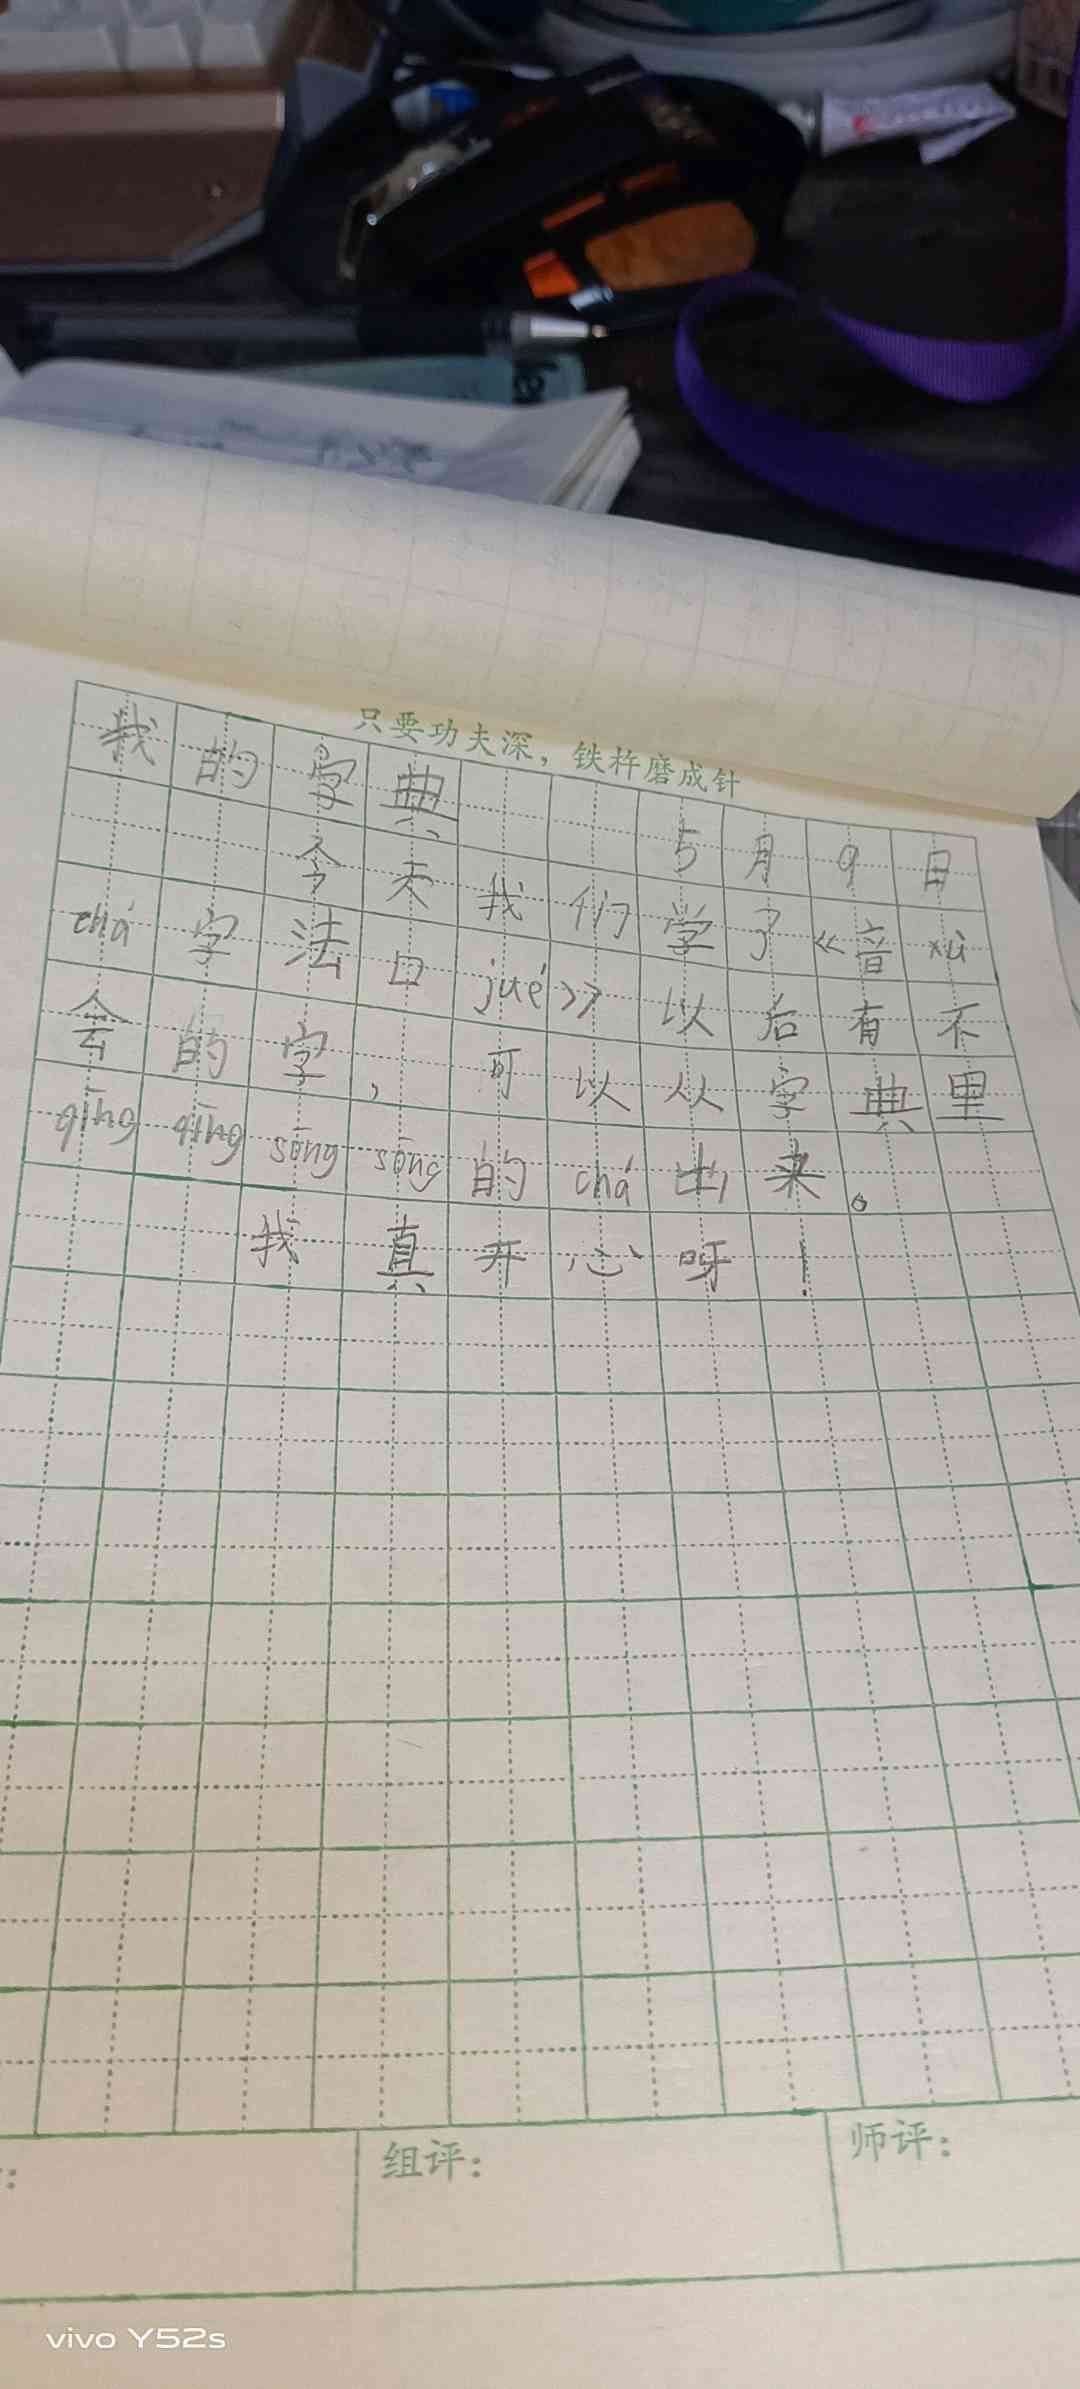 只要功夫深，铁杵磨成针
我的字典
5月9日
今天我们学了《音xù
chá字法口jué》以后有不
会的字，可以从字典里
qīng qīng sōng sōng的chá出来。
我真开心呀！
组评：
师评：
vivo Y52s